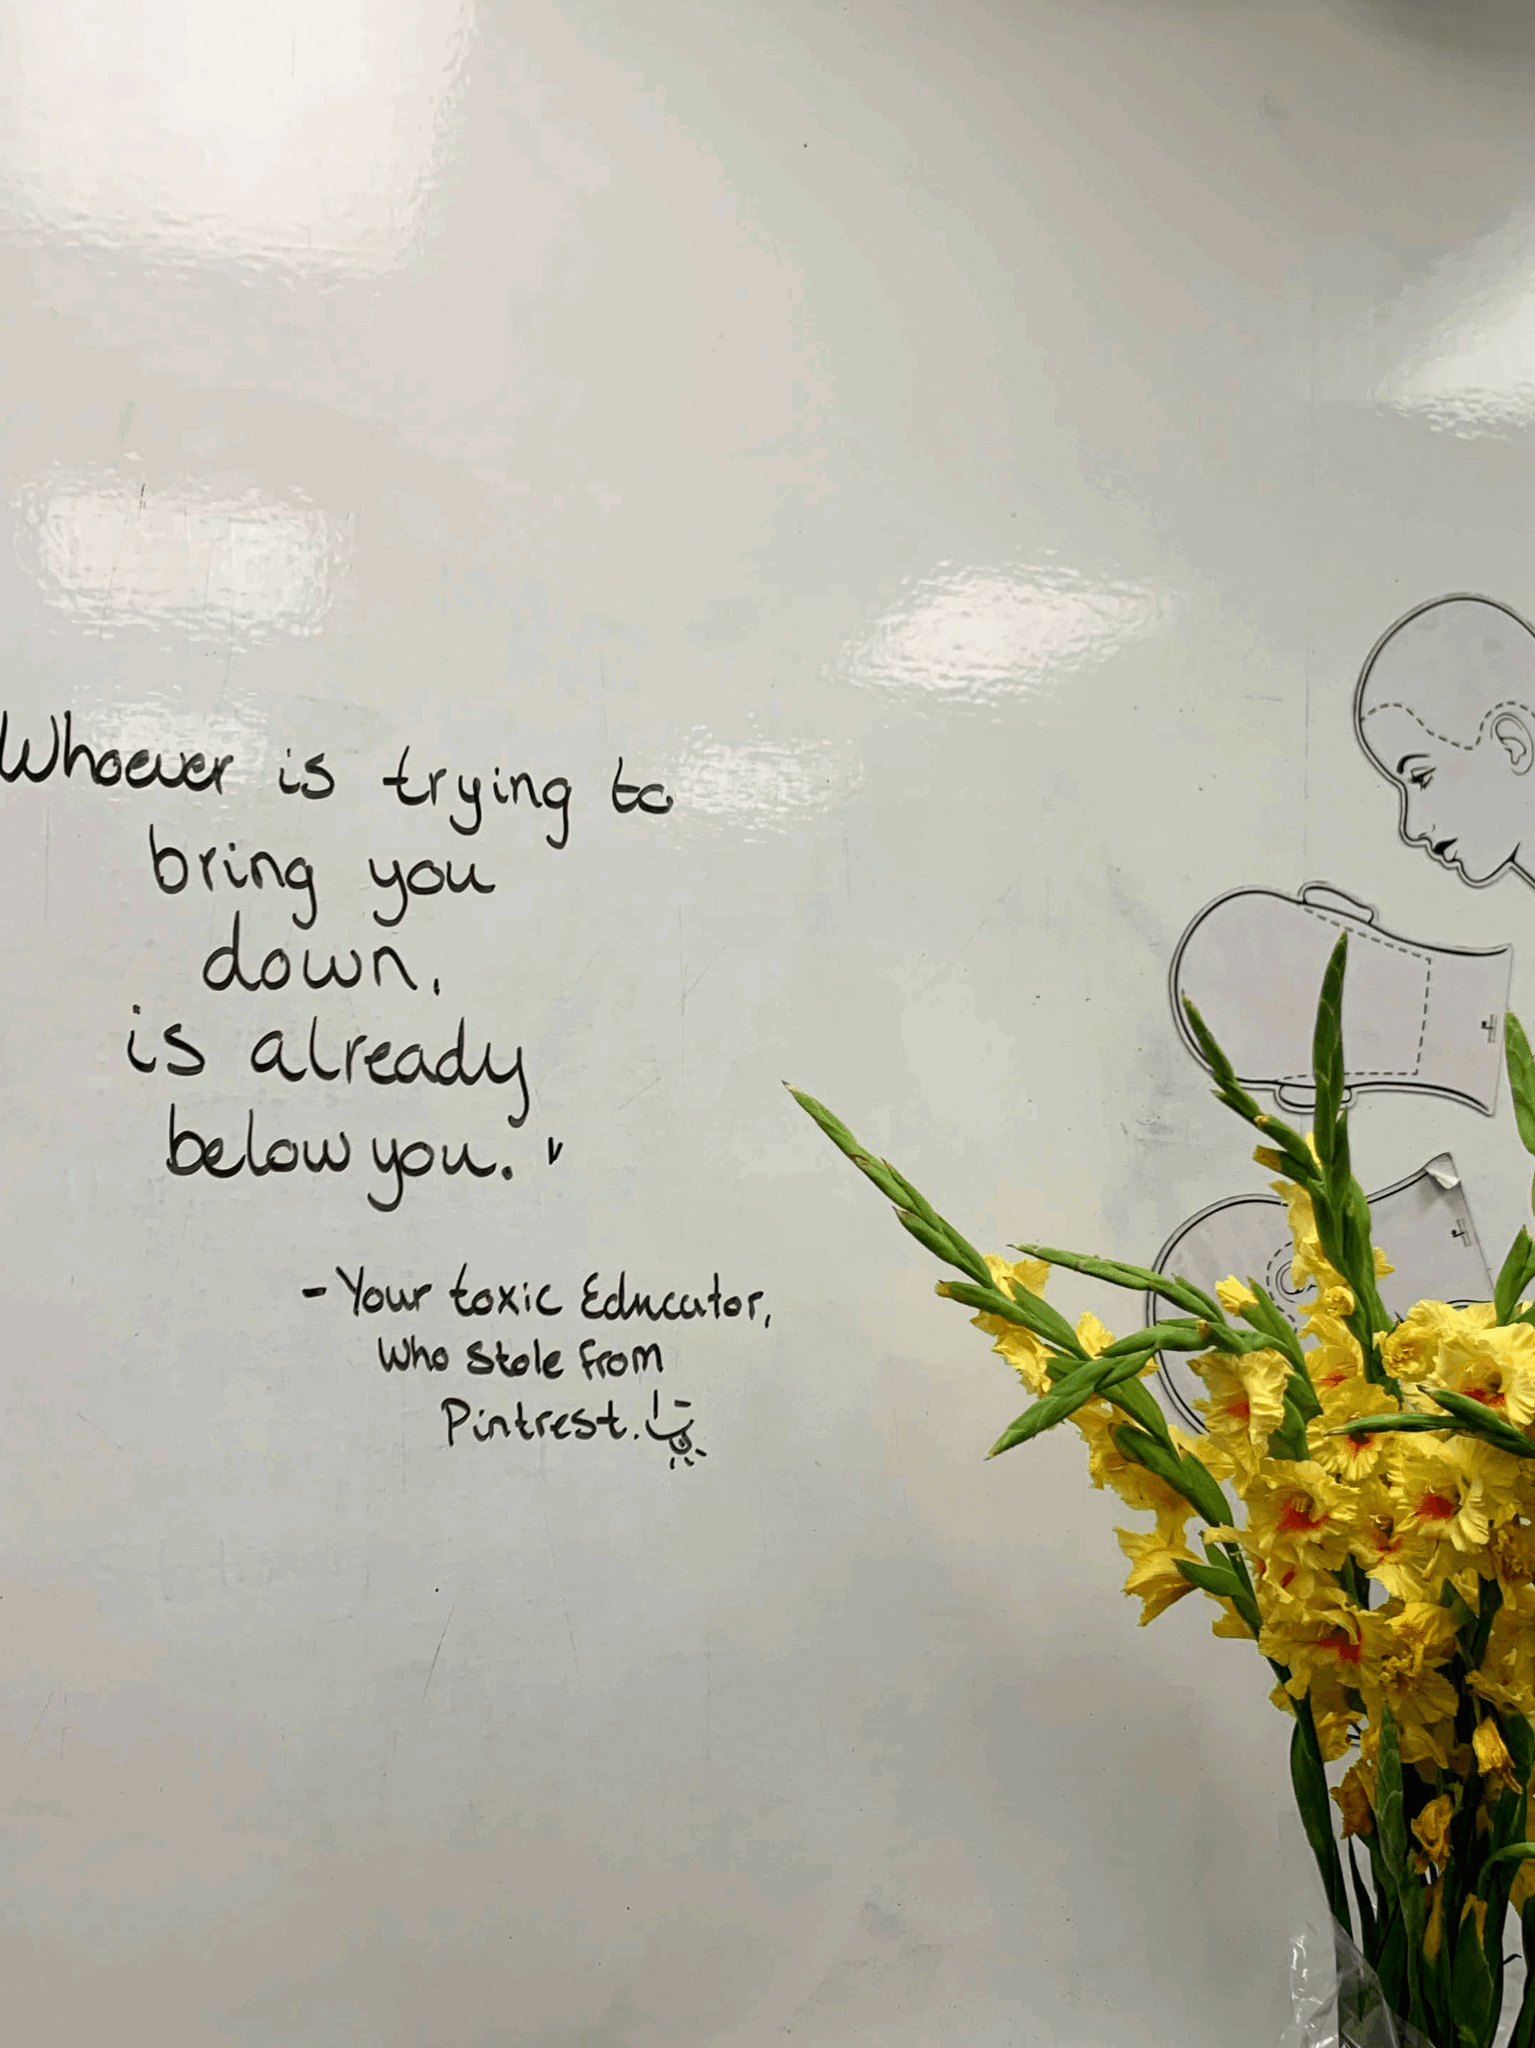 Whoever is trying to
bring you
down,
is already
below you. "
- Your toxic Educator,
Who stole from
Pintrest.